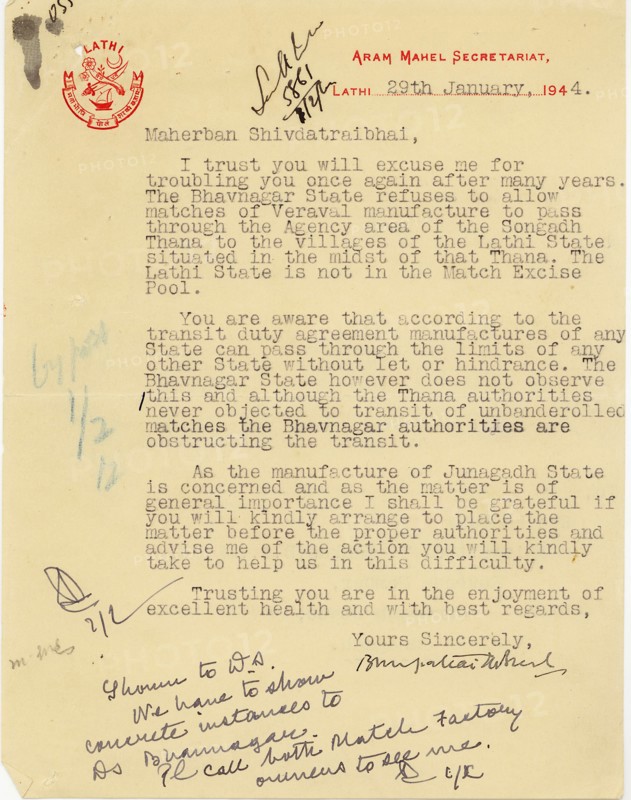 055
LATHI
5861
8/2/44
ARAM MAHEL SECRETARIAT,
LATHI 29th January, 1944.
Maherban Shivdatraibhai,
I trust you will excuse me for
troubling you once again after many years.
The Bhavnagar State refuses to allow
matches of Veraval manufacture to pass
through the Agency area of the Songadh
Thana to the villages of the Lathi State
situated in the midst of that Thana. The
Lathi State is not in the Match Excise
Pool.
You are aware that according to the
transit duty agreement manufactures of any
State can pass through the limits of any
other State without let or hindrance. The
Bhavnagar State however does not observe
this and although the Thana authorities
never objected to transit of unbanderolled
matches the Bhavnagar authorities are
obstructing the transit.
As the manufacture of Junagadh State
is concerned and as the matter is of
general importance I shall be grateful if
you will kindly arrange to place the
matter before the proper authorities and
advise me of the action you will kindly
take to help us in this difficulty.
Trusting you are in the enjoyment of
excellent health and with best regards,
Yours Sincerely,
by post
1/2
2/2
Shown to D.S.
We have to show
concrete instances to
Ds Bhavnagar.
Pl call both Match Factory
owners to see me.